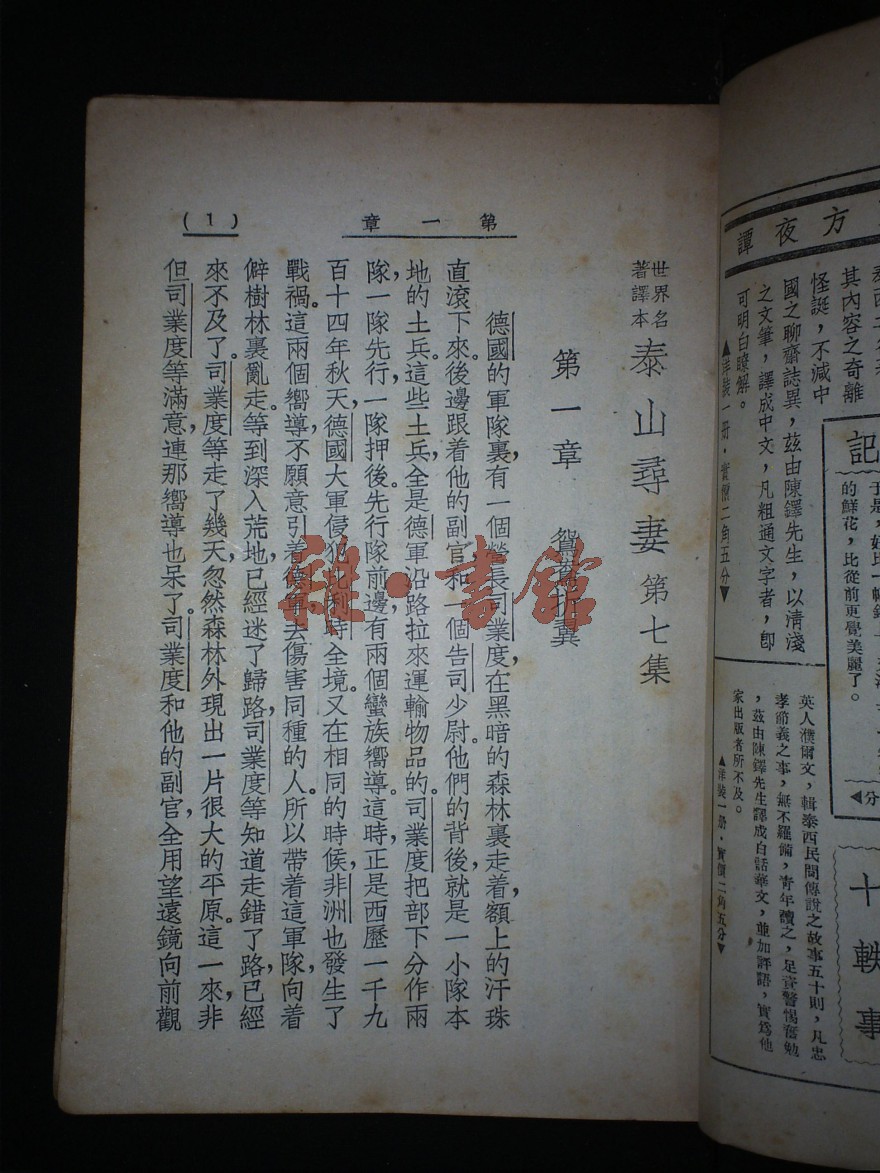 方夜譚
其內容之奇離
怪誕，不減中
國之聊齋誌異，茲由陳鐸先生，以淸淺
之文筆，譯成中文，凡粗通文字者，卽
可明白瞭解。
▲洋裝一册·實價二角五分▼
記
的鮮花，比從前更覺美麗了。
英人濮爾文，輯泰西民間傳說之故事五十則，凡忠
孝節義之事，無不羅備，靑年讀之，足資警惕奮勉
，茲由陳鐸先生譯成白話華文，並加評語，實爲他
家出版者所不及。
▲洋裝一册·實價二角五分▼
十軼事
第一章
(1)
世界名著譯本
泰山尋妻 第七集
第一章 鴛鴦折翼
德國的軍隊裏，有一個營長司業度，在黑暗的森林裏走着，額上的汗珠
直滾下來。後邊跟着他的副官，和一個告司少尉。他們的背後，就是一小隊本
地的土兵。這些土兵，全是德軍沿路拉來運輸物品的。司業度把部下分作兩
隊，一隊先行，一隊押後。先行隊前邊，有兩個蠻族嚮導。這時正是西歷一千九
百十四年秋天，德國大軍侵犯比利時全境。又在相同的時候，非洲也發生了
戰禍。這兩個嚮導，不願意引着德軍去傷害同種的人。所以帶着這軍隊，向着
僻樹林裏亂走。等到深入荒地，已經迷了歸路。司業度等知道走錯了路，已經
來不及了。司業度等走了幾天，忽然森林外現出一片很大的平原。這一來，非
但司業度等滿意，連那嚮導也呆了。司業度和他的副官，全用望遠鏡向前觀
雜·書館